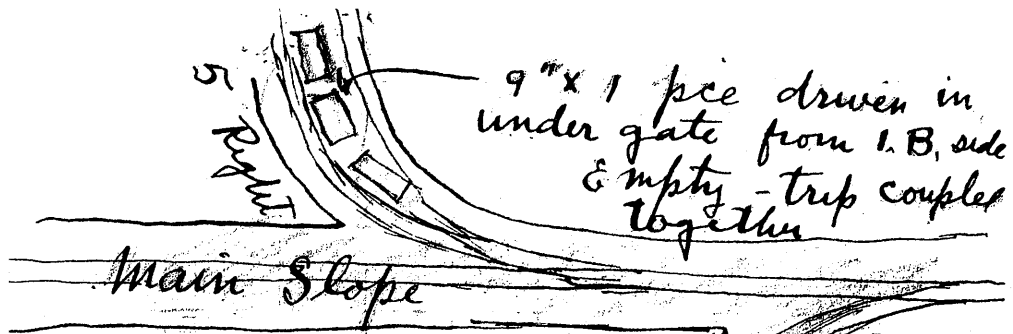 5 Right
9" x 1 pce driven in
under gate from I.B. side
Empty - trip coupled
together
Main Slope